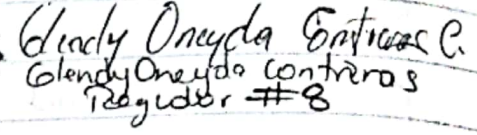 Glendy Oneyda Contreras C.
Glendy Oneyda Contreras
Regidor #8